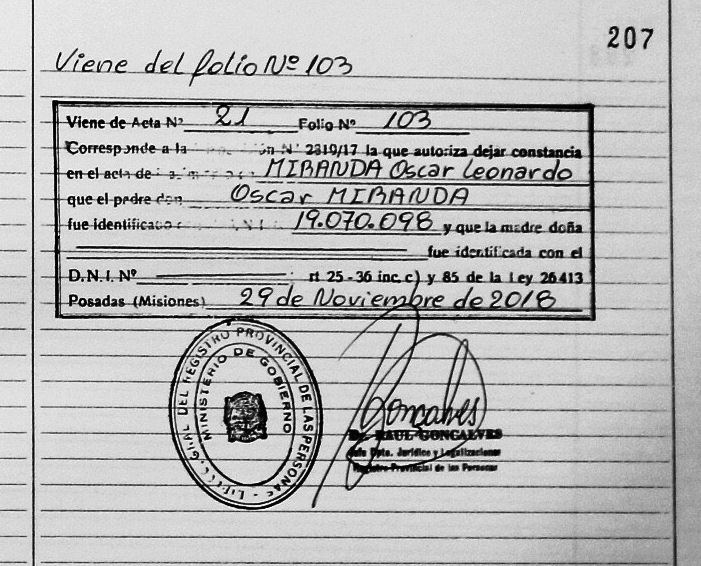 207
Viene del folio Nº 103
Viene de Acta Nº 21 Folio Nº 103
Corresponde a la Nº 2319/17 la que autoriza dejar constancia
en el acta de MIRANDA Oscar Leonardo
que el padre don Oscar MIRANDA
fue identificado 19.070.098 y que la madre doña
fue identificada con el
D.N.I. Nº rt 25-36 inc. c) y 85 de la Ley 26413
Posadas (Misiones) 29 de Noviembre de 2018
GRAL DEL REGISTRO PROVINCIAL DE LAS PERSONAS
MINISTERIO DE GOBIERNO
Goncalves
Dr. RAUL GONCALVES
Jefe Dpto. Jurídico y Legalizaciones
Registro Provincial de las Personas